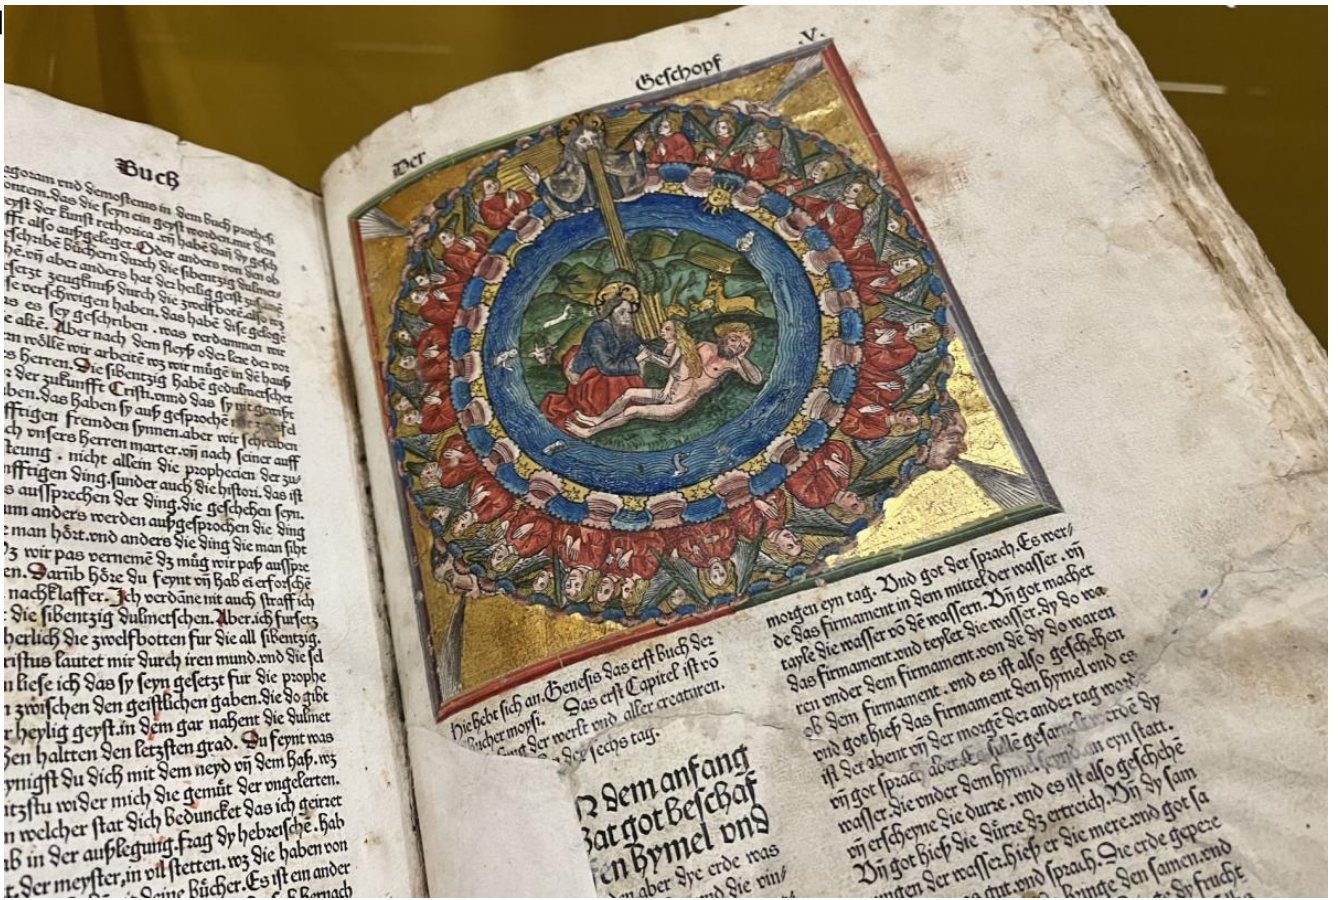 Buch
agoram vnd demostenis in dem buch prothesi
ontem. das die seyn ein geyst worden. mit dem
eyst der kunst rethorica. vñ habē dañ dy gesch
fft also außgeleget. Oder anders von den ob
eschribē büchern durch die sibentzig dulmets
hē. vñ aber anders hat der heilig geist
esetzt zeugknuß durch die zwelfbotē. also wz
se verschwigen haben. das habē dise geloge
as es sey geschriben. was verdammen wir
e altē. Aber nach dem fleyß oder lere der vor
en wöllē wir arbeitē wz wir mügē in dē hauß
s herren. Die sibentzig habē gedulmetschet
r der zukunfft Cristi. vnnd das sy nit gewißt
ben. das haben sy auß gesprochē mit
fftigen fremden synnen. aber wir schreiben
ch vnsers herren marter. vñ nach seiner auff
steung. nicht allein die prophecien der zu
nfftigen ding. sunder auch die histori. das ist
s aussprechen der ding. die geschehen seyn.
um anders werden außgesprochen die ding
e man hört. vnd anders die ding die man siht
z wir pas vernemē dz müg wir paß auſſpre
en. Darūb höre du feynt vñ hab ei erforschē
nachklaffer. Ich verdāne nit auch straff ich
die sibentzig dulmetschen. Aber. ich fursetz
herlich die zwelfbotten fur die all sibentzig.
ristus lautet mir durch iren mund. vnd die sel
n liese ich das sy seyn gesetzt fur die prophe
n zwischen den geistlichen gaben. die do gibt
r heylig geyst. in dem gar nahent die dulmet
en haltten den letzsten grad. Du feynt was
ynigst du dich mit dem neyd vñ dem haß. wz
itzstu wider mich die gemüt der vngelerten.
n welcher stat dich beduncket das ich geirret
ab in der außlegung. frag dy hebreischē. hab
t. der meyster, in vil stetten. wz die haben von
deine bücher. Es ist ein ander
hernach
Der Geschopf .V.
Hie hebt sich an. Genesis das erst buch der
bucher moysi. Das erst Capitel ist vō
der werlt vnd aller creaturen.
der sechs tag.
dem anfang
hat got beschaf
en hymel vnd
aber dye erde was
vnd die vin
morgen eyn tag. Vnd got der sprach. Es wer
de das firmament in dem mittel der wasser. vñ
tayle die wasser vō dē wassern. Vñ got machet
das firmament. vnd teylet die wasser. dy do wa
ren vnder dem firmament. von dē dy do waren
ob dem firmament. vnd es ist also geschehen
vnd got hieß das firmament den hymel vnd es
ist der abent vñ der morgē der ander tag worde
vñ got sprach aber. Es sullē gesamelt werdē dy
wasser. die vnder dem hymel seynd an eyn statt.
vñ erscheyne die durre. vnd es ist also geschehē
Vñ got hieß die dürre dz ertreich. Vñ dy sam
ungen der wasser. hieß er die mere. vnd got sa
gut. vnd sprach. Die erde gepere
bringe den samen. vnd
frucht